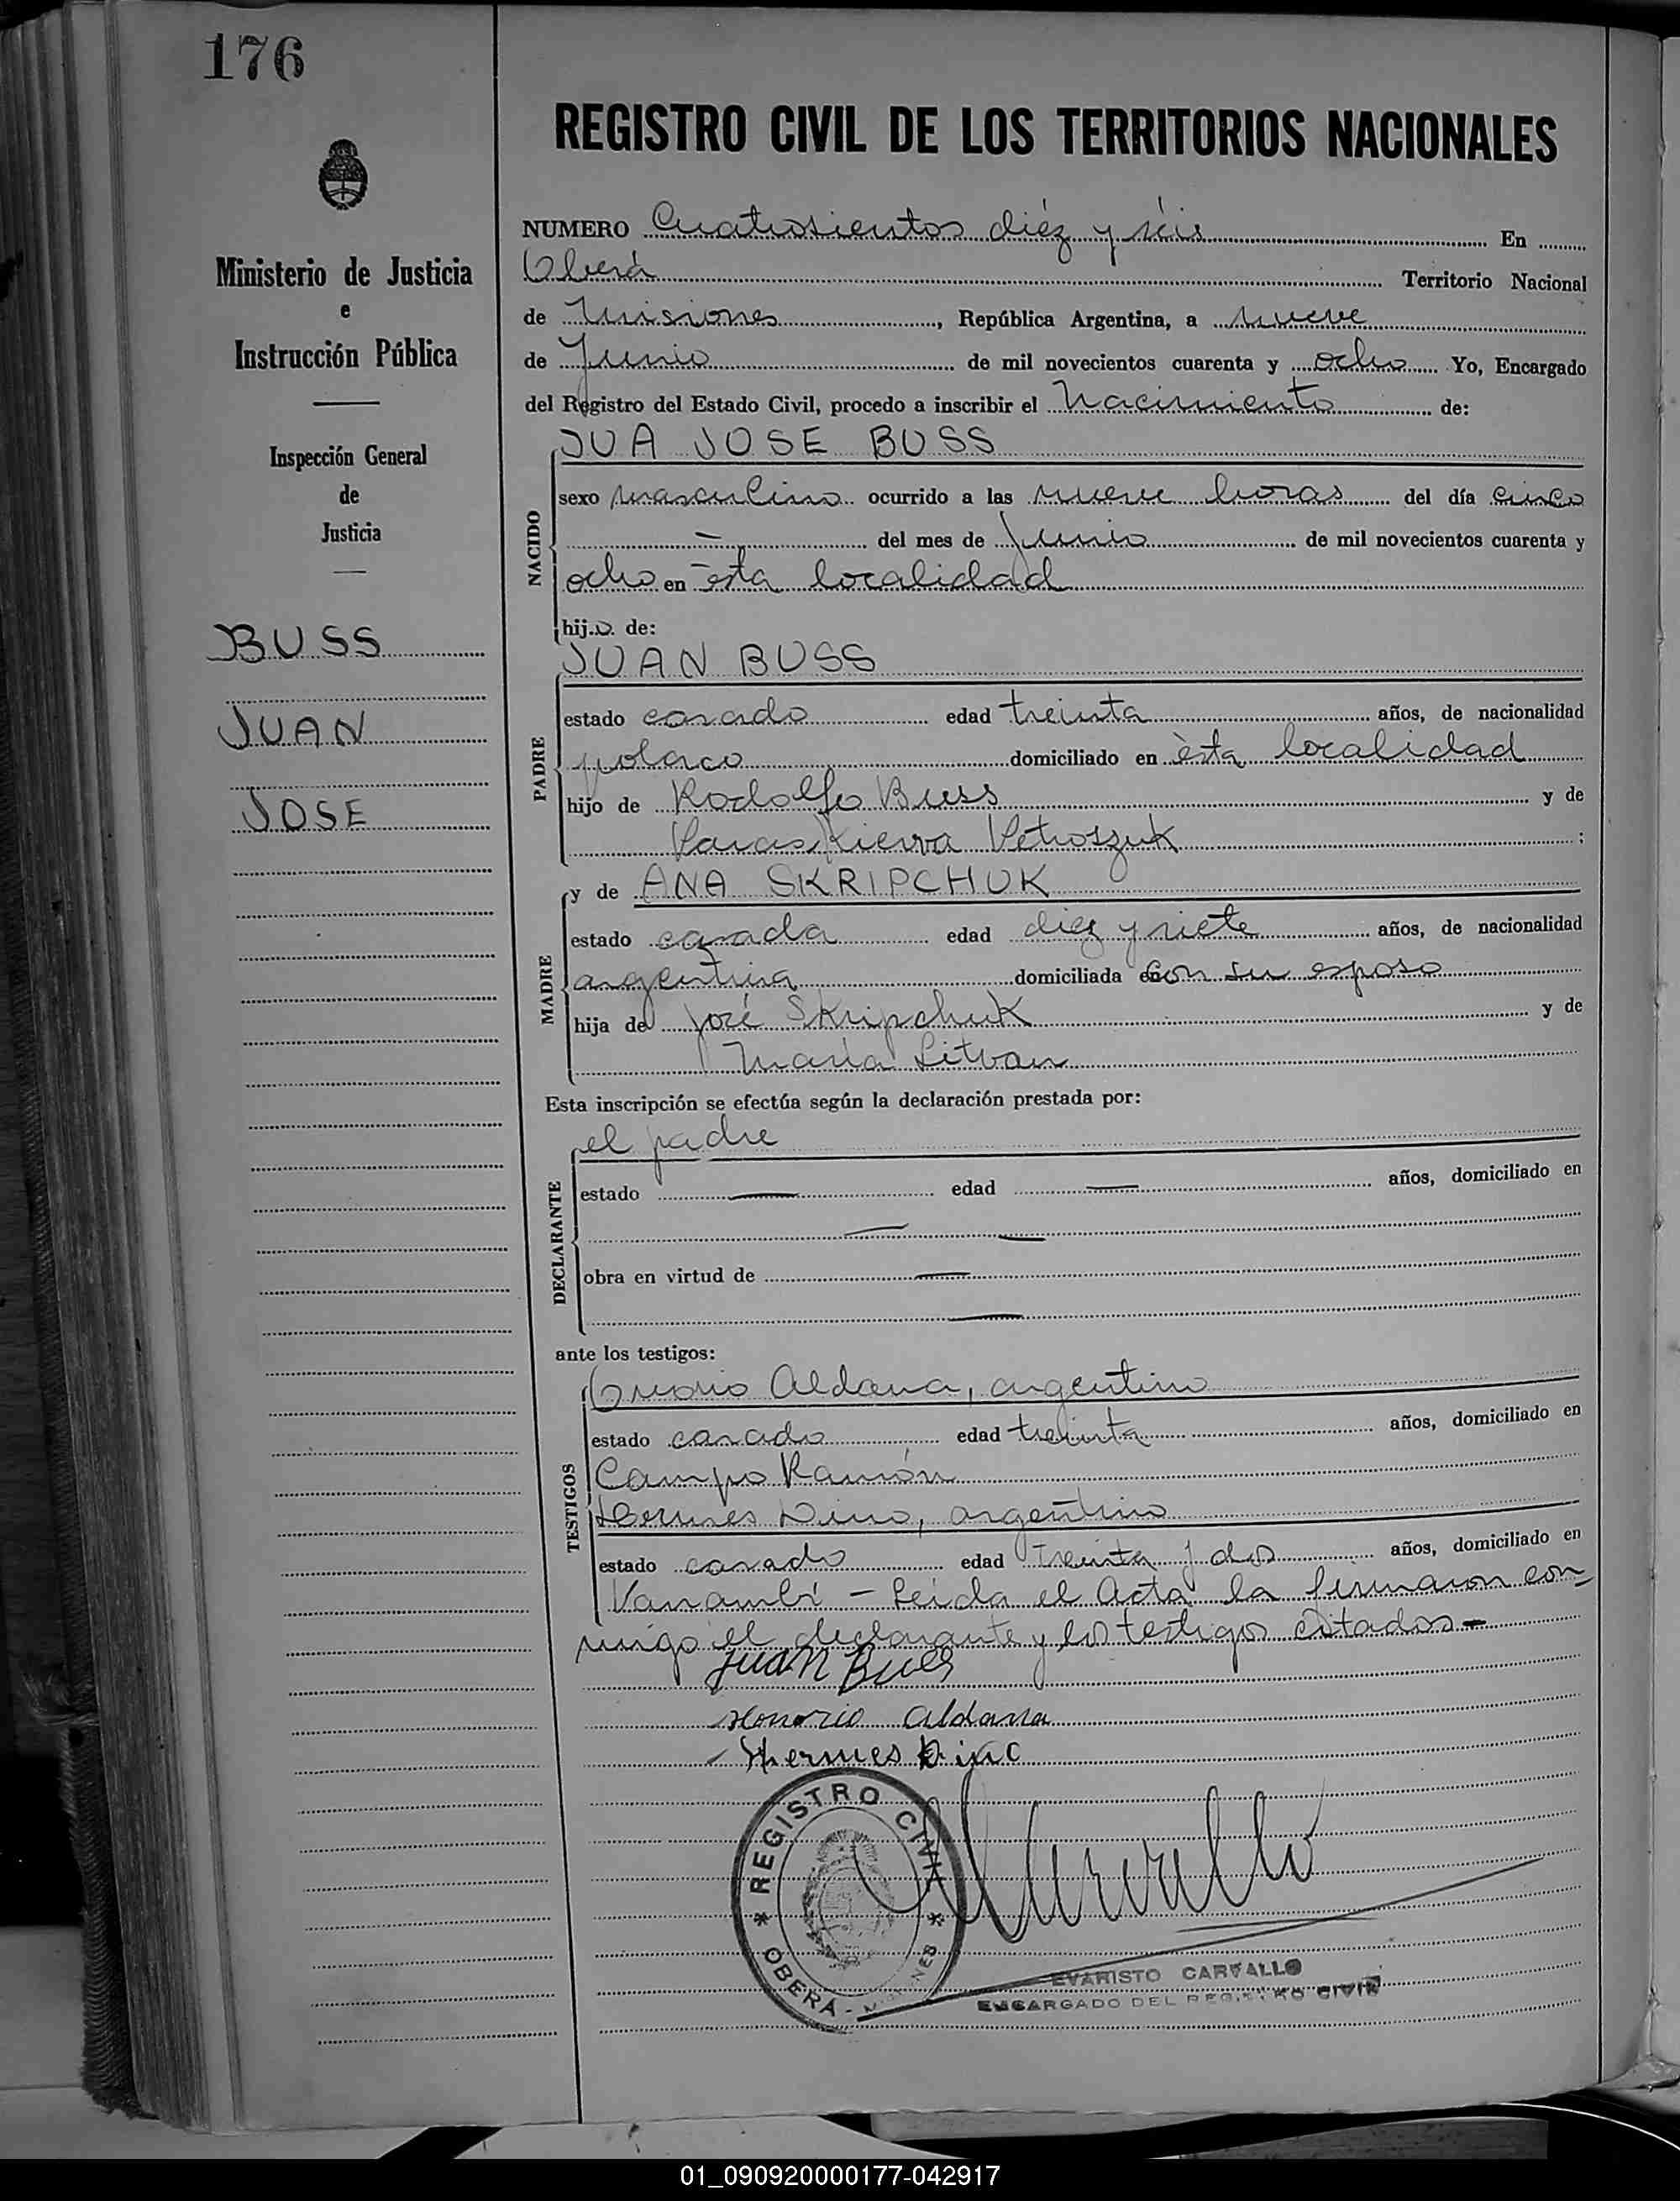 176
REGISTRO CIVIL DE LOS TERRITORIOS NACIONALES
Ministerio de Justicia
e
Instrucción Pública
Inspección General
de
Justicia
BUSS
JUAN
JOSE
NUMERO Cuatrosientos diéz y séis En
Oberá Territorio Nacional
de Misiones, República Argentina, a nueve
de Junio de mil novecientos cuarenta y ocho Yo, Encargado
del Registro del Estado Civil, procedo a inscribir el Nacimiento de:
JUA JOSE BUSS
NACIDO
sexo masculino ocurrido a las nueve horas del día cinco
— del mes de Junio de mil novecientos cuarenta y
ocho en ésta localidad
hijo de:
JUAN BUSS
PADRE
estado casado edad treinta años, de nacionalidad
polaco domiciliado en ésta localidad
hijo de Rodolfo Buss y de
Petroszuk;
y de ANA SKRIPCHUK
MADRE
estado casada edad diez y siete años, de nacionalidad
argentina domiciliada en con su esposo
hija de José Skripchuk y de
María Litvan
Esta inscripción se efectúa según la declaración prestada por:
el padre
DECLARANTE
estado — edad — años, domiciliado en
— —
obra en virtud de —
—
ante los testigos:
Onorio Aldana, argentino
TESTIGOS
estado casado edad treinta años, domiciliado en
Campo Ramón
Hermes Dino, argentino
estado casado edad treinta y dos años, domiciliado en
Yanambí - Leida el Acta la firmaron con-
migo el declarante y los testigos citados -
Juan Buss
Honorio Aldana
Hermes
REGISTRO CIVIL
* OBERÁ - *
EVARISTO CARVALLO
ENCARGADO DEL REGISTRO CIVIL
01_090920000177-042917